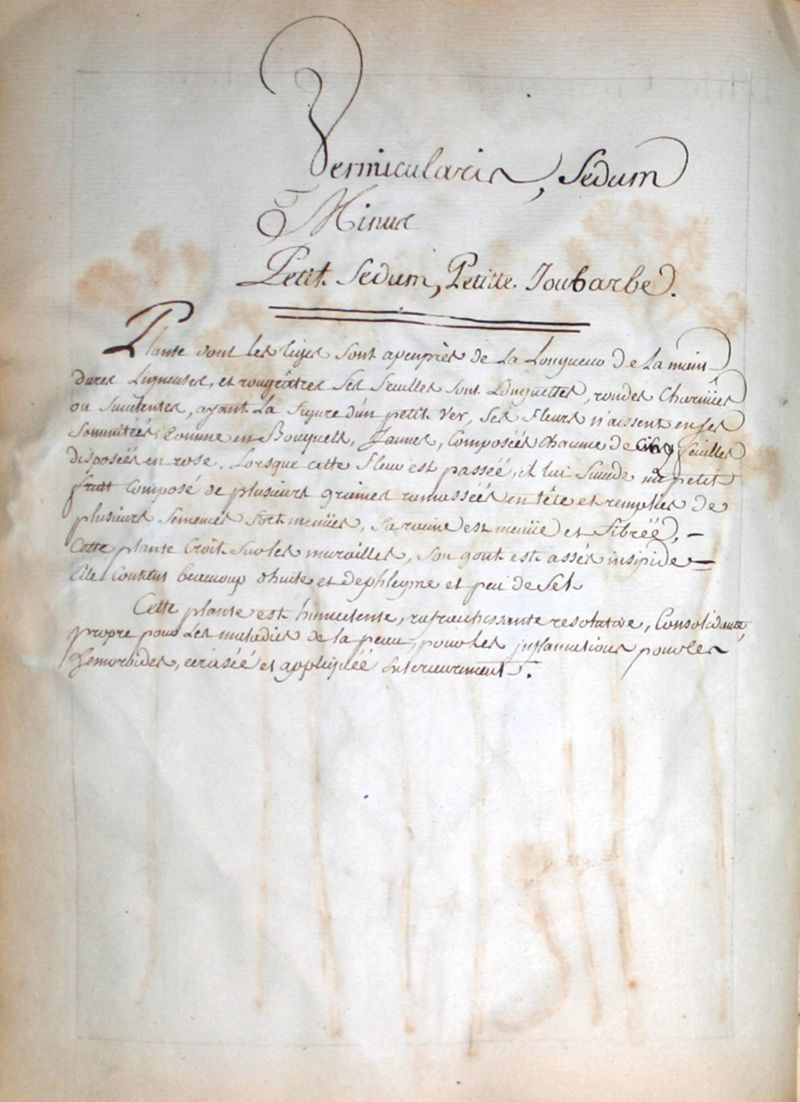 Vermicularis, Sedum
Minus
Petit Sedum, Petitte Joubarbe.
Plante dont les tiges sont apeuprès de la Longueur de la main
dures Ligneuses, et rougeâtres Ses feuilles sont Longuettes, rondes Charnües
ou Suculentes, ayant la figure d'un petit Ver, Ses fleurs n'aissent en ses
Sommitées, Comme en Bouquets, Jaunes, Composées chacune de Cinq feuilles
disposées en rose. Lorsque cette fleur est passeé, il lui Succede un petit
fruit Composé de plusieurs graines ramasseés en tête et remplies de
plusieurs Semences fort menües, Sa racine est menüe et fibreé, –
Cette plante Croit sur les murailles, Son gout est asses insipide –
Elle Contient beaucoup d'huile et de phlegme et peu de Sel
Cette plante est humectente, rafraichissante resolutive, Consolidante,
propre pour Les maladies de la peau, pour les jnflamations pour les
hemorhoides, ecraseé et appliqueé